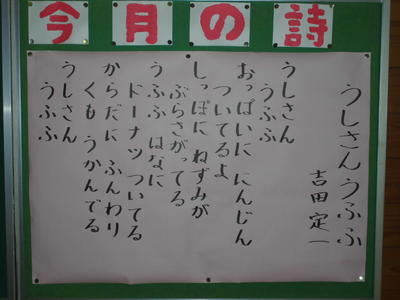 今月の詩
うしさんうふふ
吉田定一
うしさん
うふふ
おっぱいに にんじん
ついてるよ
しっぽに ねずみが
ぶらさがってる
うふふ はなに
ドーナツ ついてる
からだに ふんわり
くも うかんでる
うしさん
うふふ